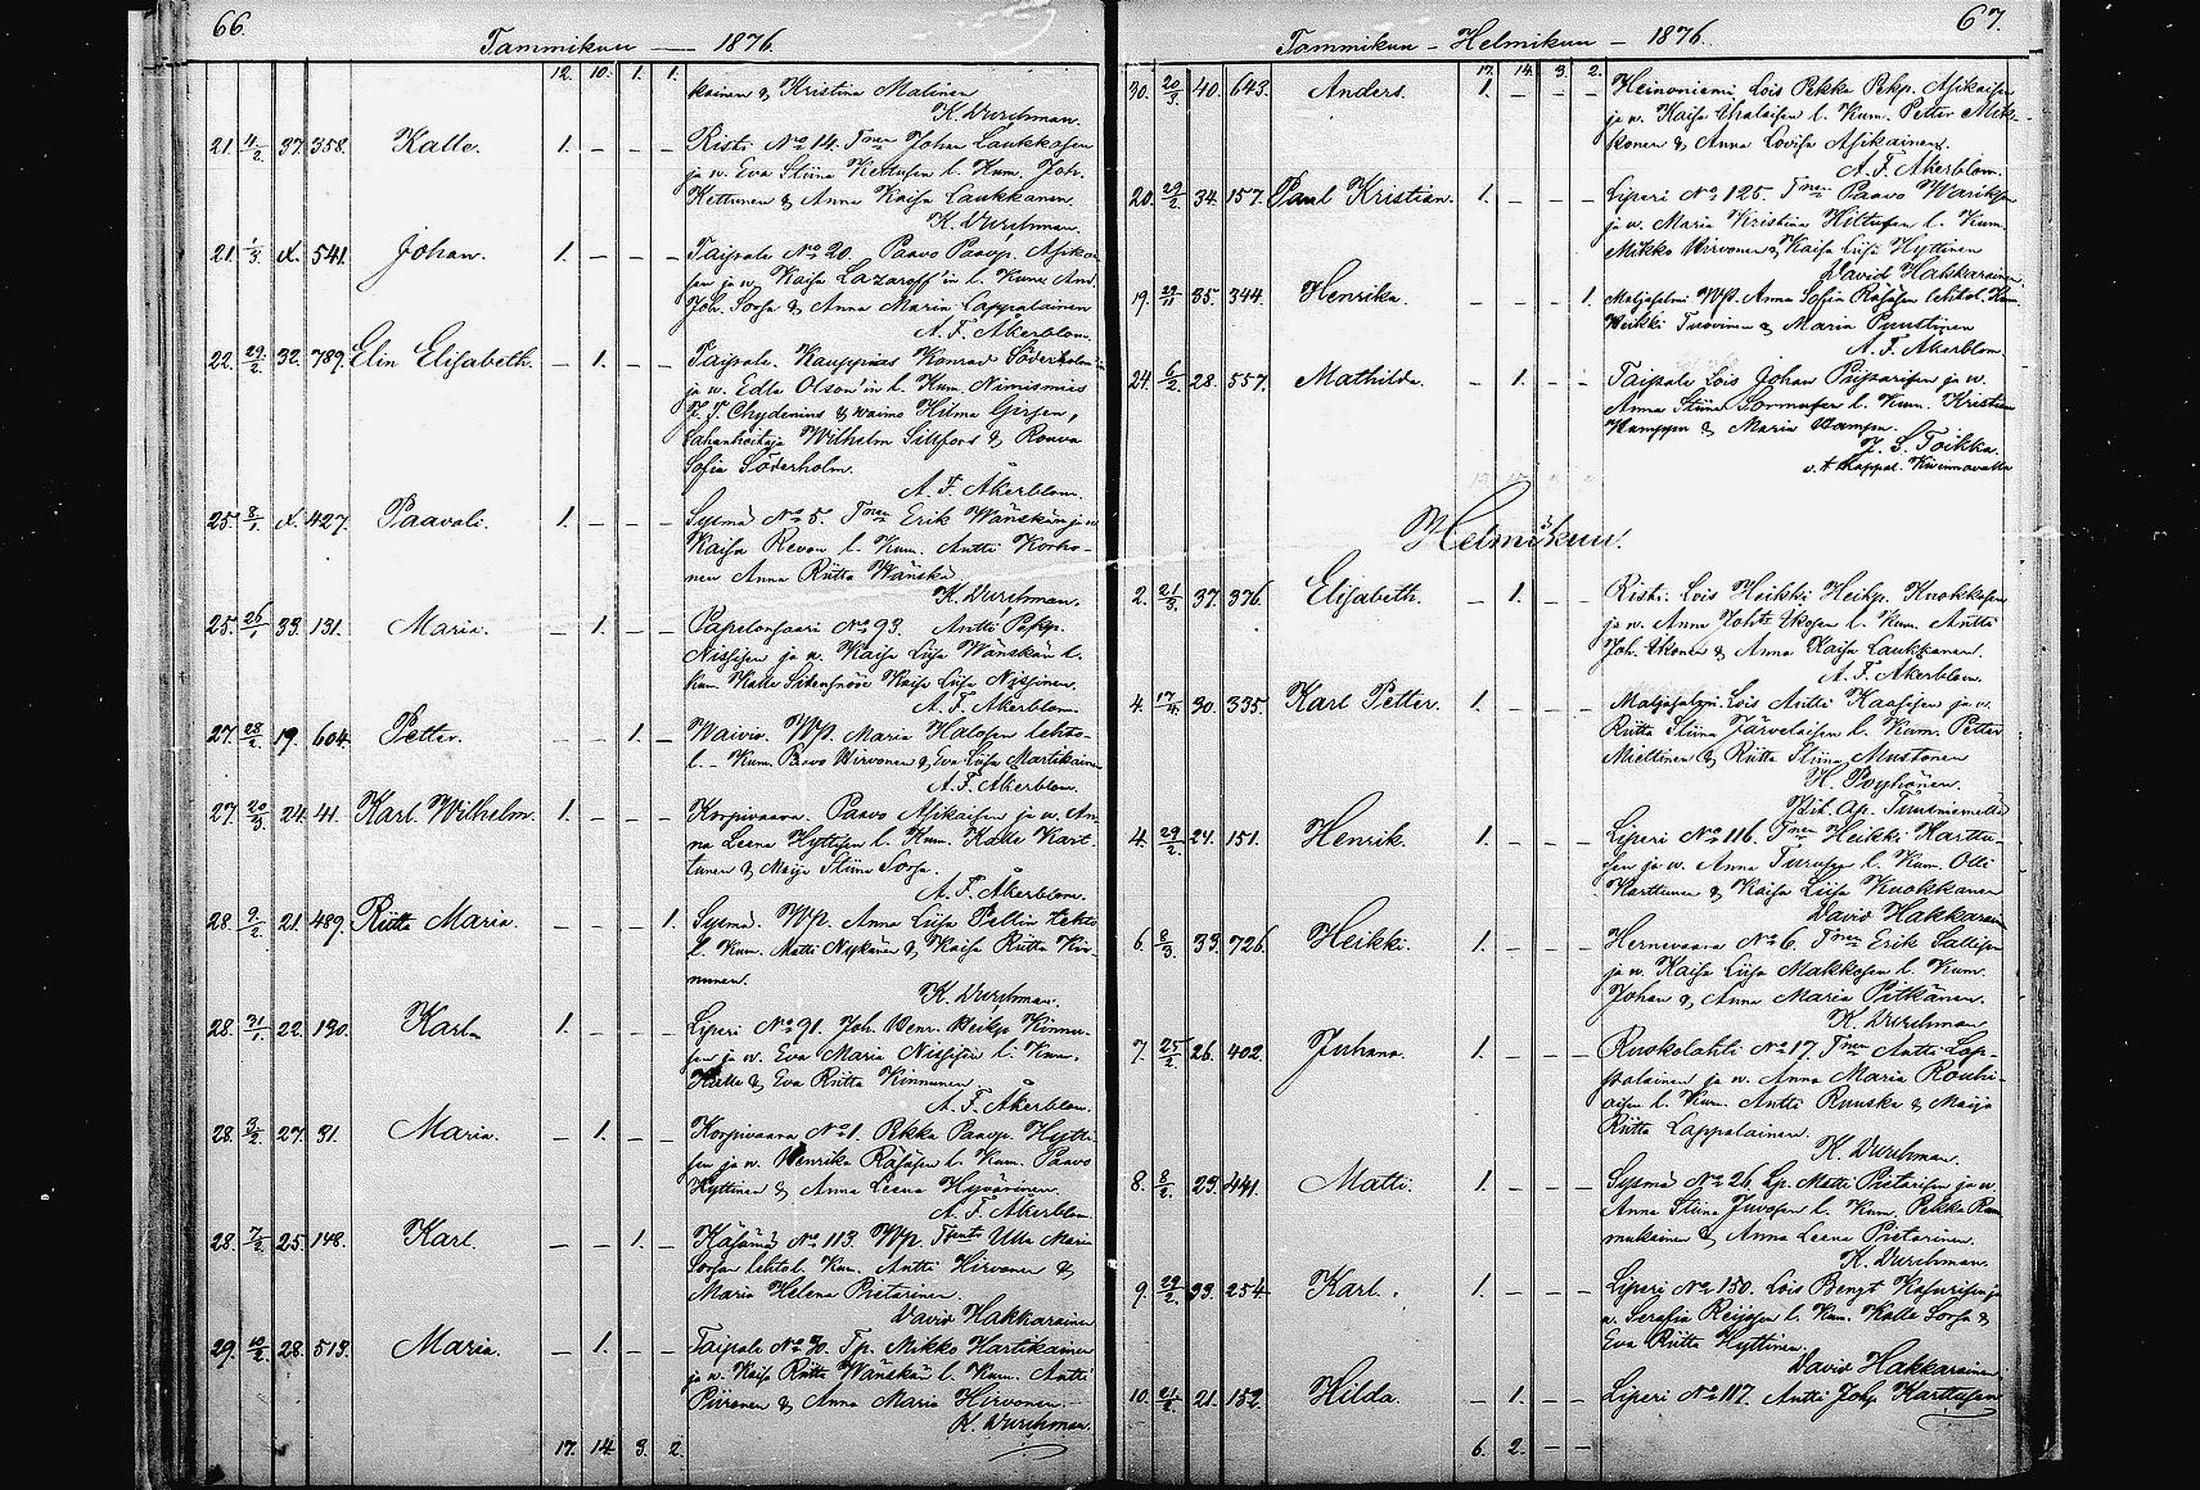 66.
Tammikuu — 1876.
12. 10. 1. 1.
kainen & Kristina Malinen
K. Durchman.
21. 4/2. 37. 358. Kalle. 1. – – – Risti No 14. Tnen Johan Laukkasen
ja v. Eva Stiina Kettusen l. Kum. Joh.
Kettunen & Anna Kaisa Laukkanen.
K. Durchman.
21. 1/3. 541. Johan. 1. – – – Taipale No 20. Paavo Paavp. Asikai
sen ja v. Kaisa Lazaroff'in l. Kum. And.
Joh. Sorsa & Anna Maria Lappalainen
A. F. Åkerblom.
22. 29/2. 32. 789. Elin Elisabeth. – 1. – – Taipale. Kauppias Konrad Söderholmin
ja v. Edla Olson'in l. Kum. Nimismies
Chydenius & waimo Hilma
Wilhelm Sillfors & Rouva
Sofia Söderholm.
A. F. Åkerblom.
25. 8/1. 427. Paavali. 1. – – – Sysmä No 5. Tnen Erik Wänskän ja v.
Kaisa Revon l. Kum. Antti Korho-
nen Anna Riitta Wänskä
K. Durchman.
25. 26/1 33. 131. Maria. – 1. – – No 93. Antti Pekp.
Nissisen ja v. Kaisa Liisa Wänskän l.
Kum. Kalle Kaisa Liisa Nissinen.
A. F. Åkerblom.
27. 28/2. 19. 604. Petter. – – 1. – Waivio. Wp. Maria Halosen lehto-
l. – Kum. Paavo Hirvonen & Eva Liisa Martikainen
A. F. Åkerblom.
27. 20/3 24. 41. Karl Wilhelm. 1. – – – Korpivaara. Paavo Asikaisen ja v. An-
na Leena Hyttisen l. Kum. Kalle Kart-
tunen & Maija Stiina Sorsa.
A. F. Åkerblom.
28. 9/2. 21. 489. Riitta Maria. – – – 1. Sysmä. Wp. Anna Liisa Pellin lehto
l. Kum. Matti Nykänen & Kaisa Riitta Kin-
nunen.
K. Durchman.
28. 31/1. 22. 190. Karl. 1. – – – Liperi No 91. Joh. Henr. Heikp Kinnu-
sen ja v. Eva Maria Nissisen l. Kum.
Kalle & Eva Riitta Kinnunen
A. F. Åkerblom.
28. 3/2. 27. 31. Maria. – 1. – – Korpivaara No 1. Pekka Paavp. Hytti-
sen ja v. Henrika Räsäsen l. Kum. Paavo
Hyttinen & Anna Leena Hyvärinen.
A. F. Åkerblom.
28. 7/2. 25. 148. Karl. – – 1. – Käsämä No 113. Wp. Ulla Maria
Sorsan lehtol. Kum. Antti Hirvonen &
Maria Helena Pietarinen.
David Hakkarainen
29. 10/2. 28. 513. Maria. – 1. – – Taipale No 30. Tp. Mikko Hartikainen
ja v. Kaisa Riitta Wänskän l. Kum. Antti
Piironen & Anna Maria Hirvonen.
K. Durchman.
17. 14. 3. 2.
67.
Tammikuu – Helmikuu – 1876.
17. 14. 3. 2.
30. 20/3. 40. 643. Anders. 1. – – – Heinoniemi, Lois Pekka Pekp. Asikaisen
ja v. Kaisa l. Kum. Petter Mik-
konen & Anna Lovisa Asikainen.
A. F. Åkerblom.
20. 29/2. 34. 157. Paul Kristian. 1. – – – Liperi No 125. Tnen Paavo
ja v. Maria Kristina Hiltusen l. Kum.
Mikko Hirvonen & Kaisa Liisa Hyttinen
David Hakkarainen
19. 29/11 35. 344. Henrika. – – – 1. Wp. Anna Sofia Räsäsen lehtol. Kum.
Heikki Turovinen & Maria Puustinen
A. F. Åkerblom.
24. 6/2. 28. 557. Mathilda. – 1. – – Taipale Lois Johan Piiparisen ja v.
Anna Stiina Sormusen l. Kum. Kristian
Kamppu & Maria Kamppu.
Toikka.
v. t. Kappal. Kiimavalla
Helmikuu.
2. 21/3. 37. 376. Elisabeth. – 1. – – Risti. Lois Heikki Heikp. Kuokkasen
ja v. Anna Ikosen l. Kum. Antti
Joh. Ikonen & Anna Kaisa Laukkanen.
A. F. Åkerblom.
4. 17/4. 30. 335. Karl Petter. 1. – – – Lois Antti Kaasisen ja v.
Riitta Stiina Järveläisen l. Kum. Petter
Miettinen & Riitta Stiina Mustonen
H. Poyhönen.
Pit. Ap. Tuusniemellä
4. 29/2. 24. 151. Henrik. 1. – – – Liperi No 116. Tnen Heikki Karttu-
sen ja v. Anna Turusen l. Kum. Olli
Karttunen & Kaisa Liisa Kuokkanen
David Hakkarainen
6. 8/3. 33. 726. Heikki. 1. – – – Hernevaara No 6. Tnen Erik Sallisen
ja v. Kaisa Liisa Makkosen l. Kum.
Johan & Anna Maria Pitkänen.
K. Durchman
7. 25/2. 26. 402. Juhana. 1. – – – Ruokolahti No 17. Tnen Antti Lap-
palainen ja v. Anna Maria Rouhi-
aisen l. Kum. Antti Ruuska & Maija
Riitta Lappalainen.
K. Durchman.
8. 8/2. 23. 441. Matti. 1. – – – Sysmä No 26. Lp. Matti Pietarisen ja v.
Anna Stiina Juvosen l. Kum. Pekka Ram
mukainen & Anna Leena Pietarinen.
K. Durchman.
9. 29/2. 33. 254. Karl. 1. – – – Liperi No 150. Lois Bengt Kosurisen ja
v. Serafia Reijosen l. Kum. Kalle Sorsa &
Eva Riitta Hyttinen.
David Hakkarainen
10. 21/2. 21. 152. Hilda. – 1. – – Liperi No 117. Antti Johp Karttusen
6. 2. – –